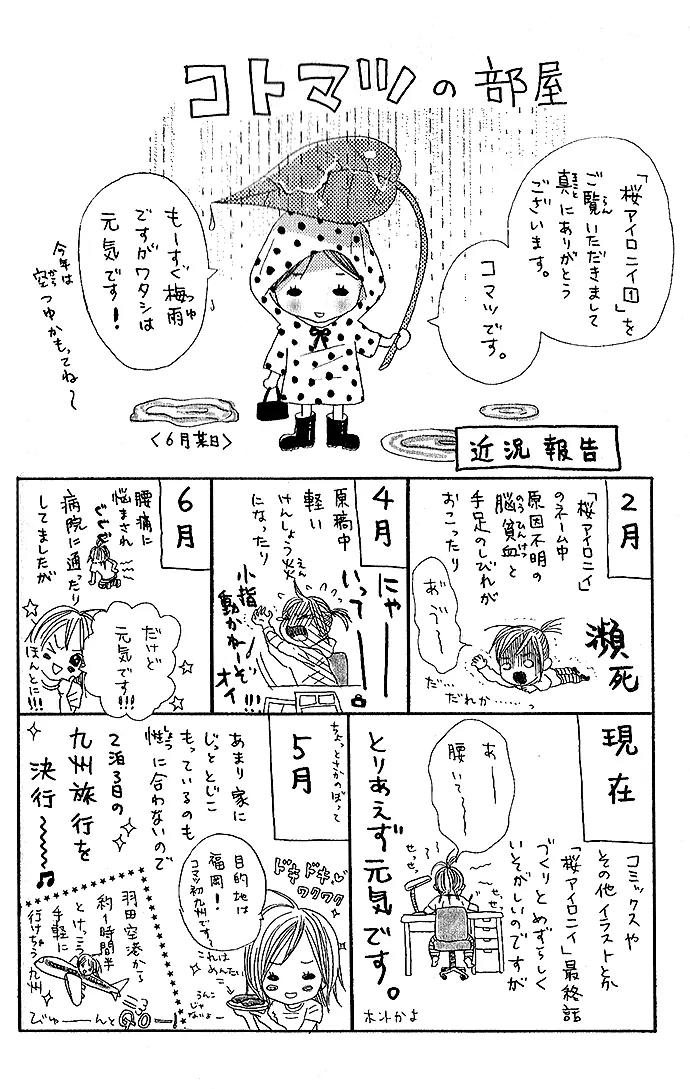 コトマツの部屋
「桜アイロニィ1」を
ご覧いただきまして
真にありがとう
ございます。
コマツです。
もーすぐ梅雨
ですがワタシは
元気です！
今年は
空つゆかもってね〜
＜6月某日＞
近況報告
2月
「桜アイロニィ」
のネーム中
原因不明の
脳貧血と
手足のしびれが
おこったり
瀕死
あ゛ゔ〜
だ…
だれか……っ
4月
原稿中
軽い
けんしょう炎
になったり
にゃー
いってーー
小指
動かねーぞ
オイ!!!
6月
腰痛に
悩まされ
病院に通ったり
してましたが
ぐぐぐ
だけど
元気です!!!
ほんとに!!!
現在
コミックスや
その他イラストとか
「桜アイロニィ」最終話
づくりとめずらしく
いそがしいのですが
ホントかよ
あー
腰いてー
せっせっ
せっせ
とりあえず元気です。
ちょっとさかのぼって
5月
あまり家に
じっととじこ
もっているのも
性に合わないので
2泊3日の
九州旅行を
決行〜〜♪
目的地は
福岡！
コマツ初九州です〜
ドキドキ
ワクワク
これは
めんたい
うんこ
じゃ
ないよー
羽田空港から
約1時間半
とけっこう
手軽に
行けちゃう九州
びゅーーんと